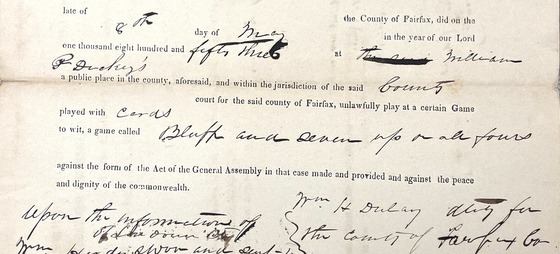 late of the County of Fairfax, did on the
8th day of May in the year of our Lord
one thousand eight hundred and fifty three at William
P. Duckey's
a public place in the county, aforesaid, and within the jurisdiction of the said County
court for the said county of Fairfax, unlawfully play at a certain Game
played with cards
to wit, a game called Bluff and seven up or all fours
against the form of the Act of the General Assembly in that case made and provided and against the peace
and dignity of the commonwealth.
Upon the information of
Wm sworn and sent
Wm H Dulany atty for
the county of Fairfax Co